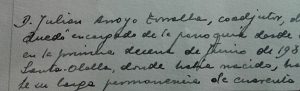 D. Julian Arroyo Torralba, coadjutor, d
quedó encargado de la parroquia desde
en la primera decena de Junio de 193
Santa-Olalla, donde habia nacido, ha
te su larga permanencia de cuarenta